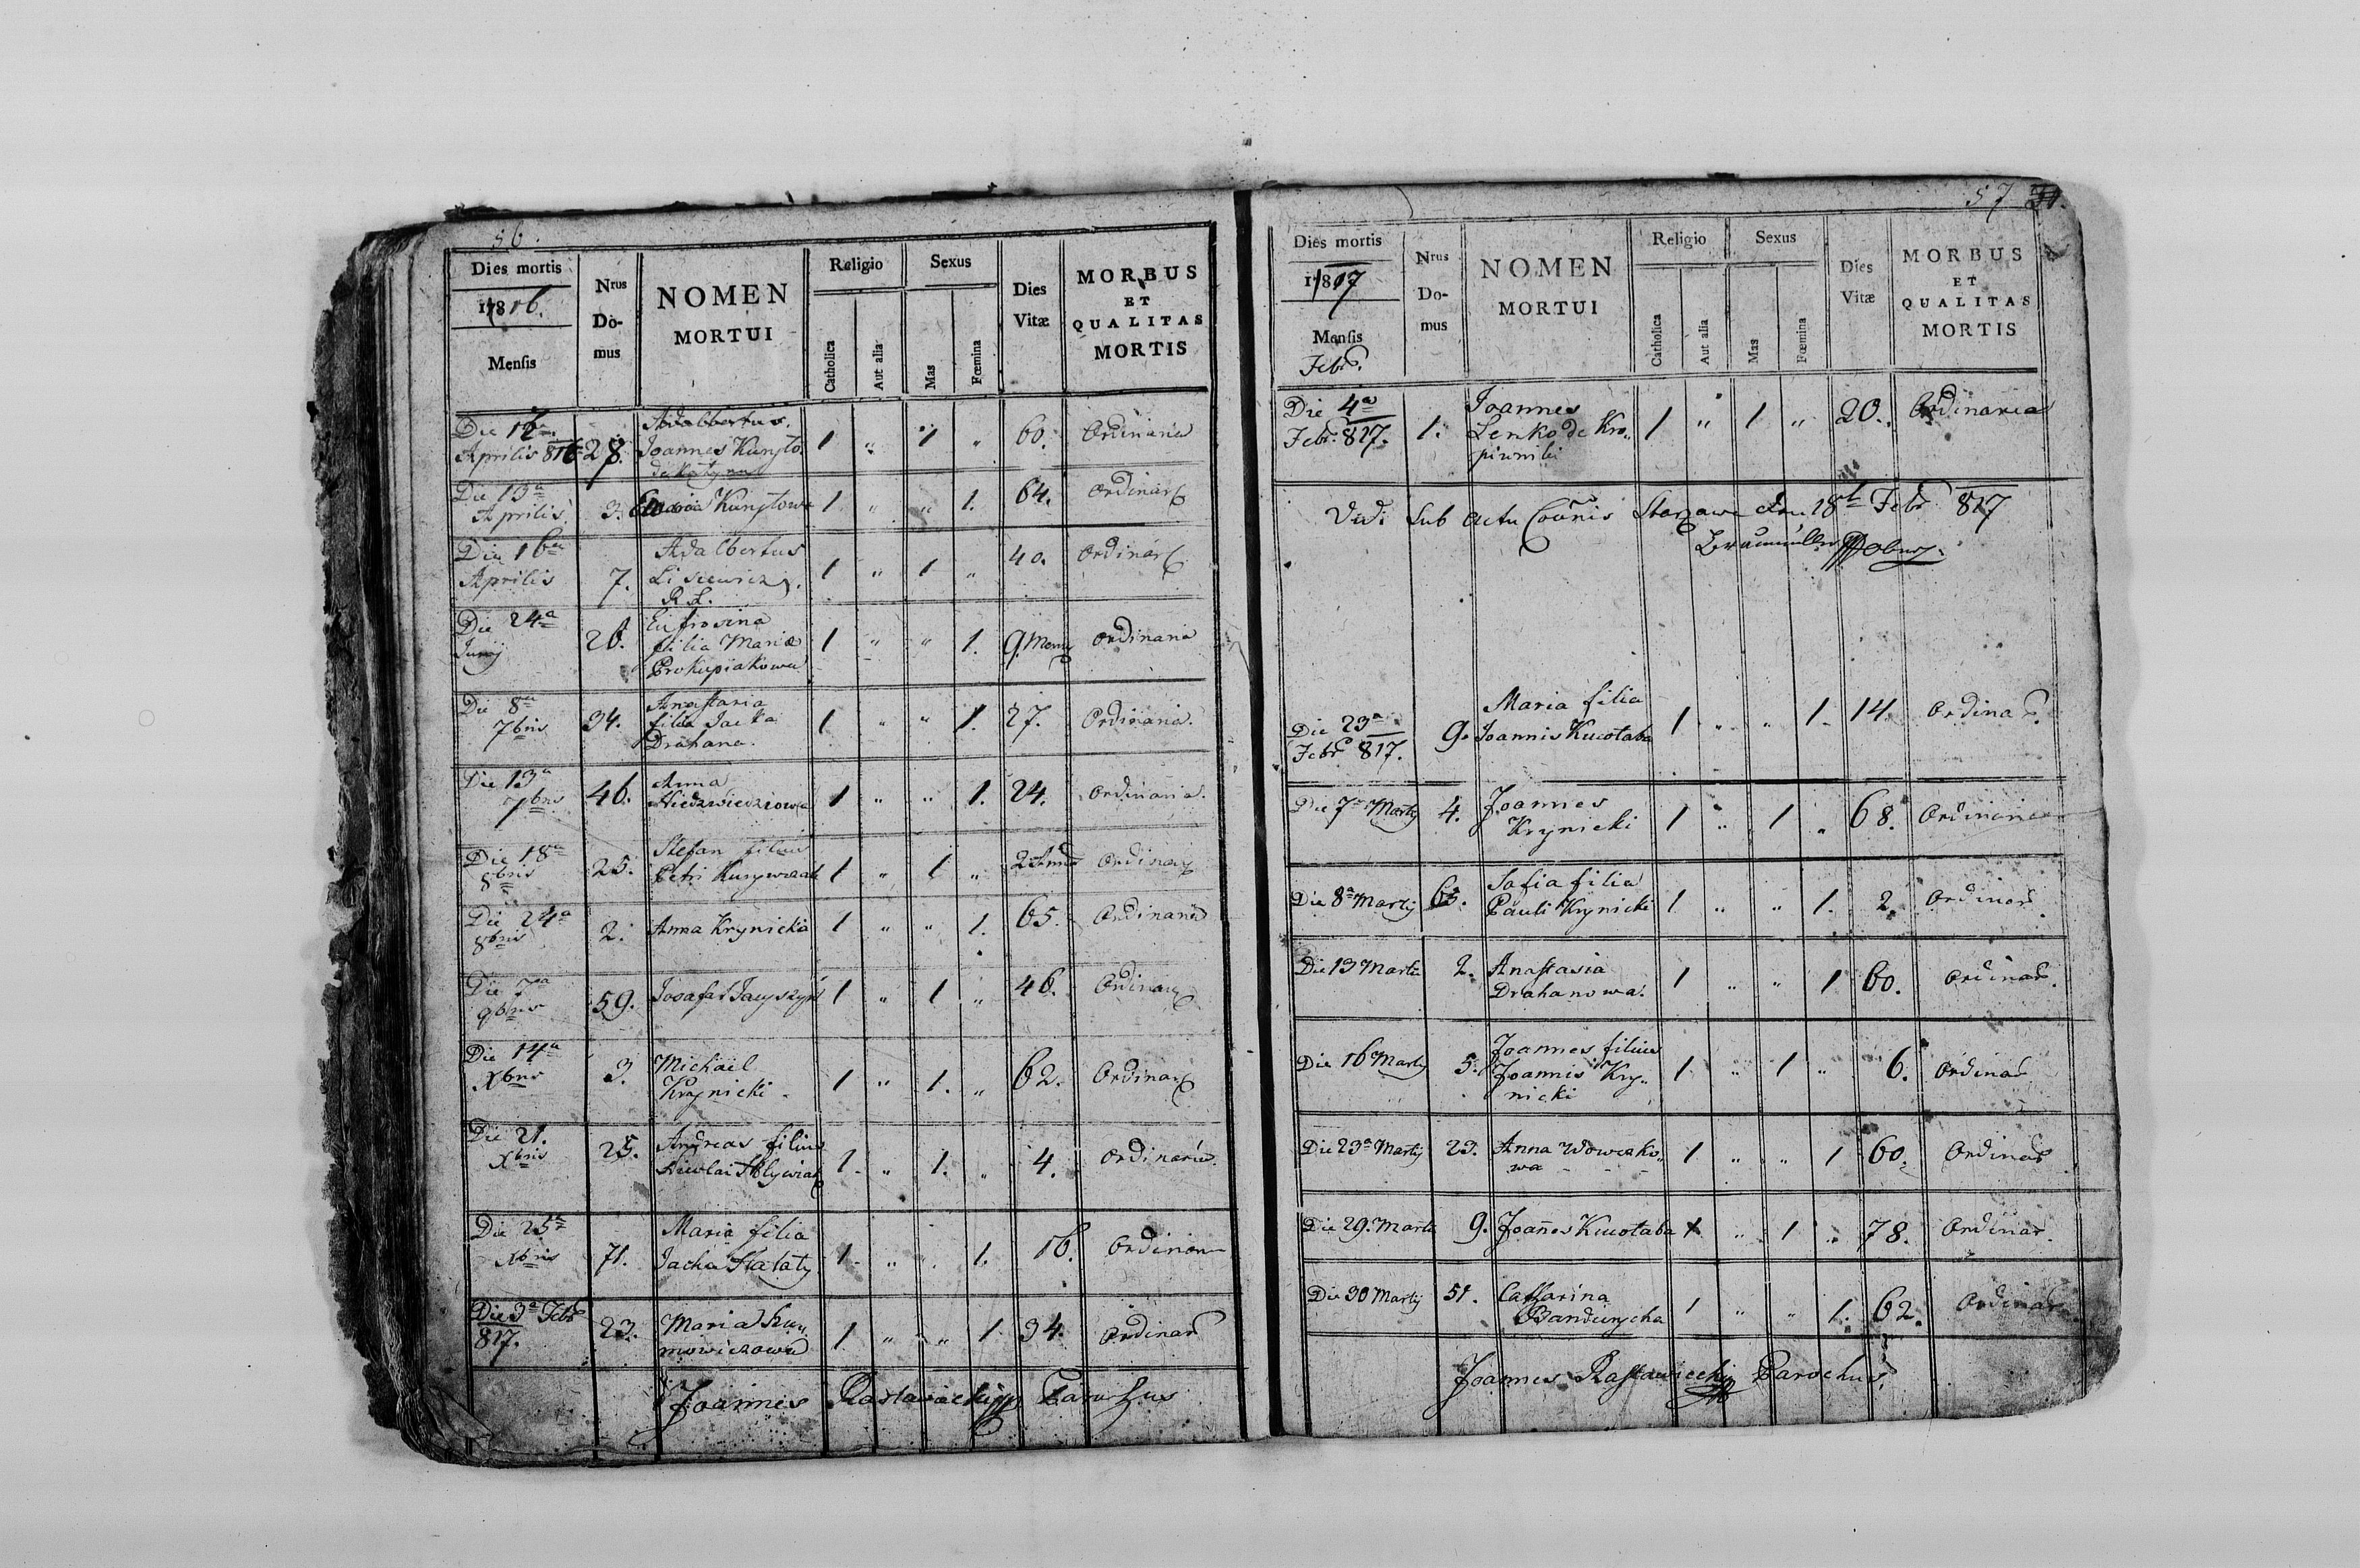 56.
Dies mortis
1816.
Mensis
Nrus Do-mus
NOMEN MORTUI
Religio
Catholica
Aut alia
Sexus
Mas
Fœmina
Dies Vitæ
MORBUS ET QUALITAS MORTIS
Die
Aprilis 816 28. Joannes 1 " 1 " 60. Ordinaria
Adalbertus
Die 13a
Aprilis 3. 1 " " 1. 64. Ordinar
Die 16a Adalbertus
Aprilis 7. 1 " 1 " 40. Ordinar
R. L.
Die 24a Eufrosina
Junij 26. filia Maria 1 " " 1. 9. Ordinaria
Prokupiakowa
Die 8a Anastasia
7bris 34. filia Jacka 1 " " 1. 27. Ordinaria.
Drahana.
Die 13a Anna
7bris 46. Niedzwiedziowa 1 " " 1. 24. Ordinaria.
Die 18a Stefan filius
8bris 25. Petri 1 " 1 " 2 Ordinar
Die 24a
8bris 2. Anna Krynicka 1 " " 1. 65. Ordinaria
Die 7a
9bris 59. Josafat 1 " 1 " 46. Ordinar
Die 14a Michael
Xbris 3. Krynicki 1 " 1. " 62. Ordinar
Die 21. Andreas filius
Xbris 25. 1. " 1. " 4. Ordinaria.
Die 25a Maria filia
Xbris 71. Jacka 1. " " 1. 16. Ordinar
Die 3a Febr
817. 23. Maria 1 " " 1. 34. Ordinar
Joannes Parochus
57
Dies mortis
1817
Mensis
Febr.
Nrus Do-mus
NOMEN MORTUI
Religio
Catholica
Aut alia
Sexus
Mas
Fœmina
Dies Vitæ
MORBUS ET QUALITAS MORTIS
Die 4a Joannes
Febr. 817. 1. Lenko de Kro„ 1 " 1 " 20. Ordinaria
piwniki
Vidi Sub Actu Starzawa 18t Febr 817
Die 23a Maria filia
Febr 817. 9. Joannis Kucotaba 1 " " 1. 14. Ordinar.
Die 7a Martij 4. Joannes 1 " 1 " 68. Ordinaria
Krynicki
Die 8a Martij 65. Sofia filia
Pauli Krynicki 1 " " 1. 2. Ordinar
Die 13 Martii 2. Anastasia
Drahanowa. 1 " " 1 60. Ordinar.
Die 16 Martij 5. Joannes filius
Joannis Kry„ 1 " 1 " 6. Ordinar
nicki
Die 23a Martij 23. Anna Wowczko„ 1 " " 1 60. Ordinar
wa
Die 29. Martii 9. Joañes Kucotaba 1 " 1 " 78. Ordinar.
Die 30 Martij 51. Catharina
Bandurycha 1 " " 1. 62. Ordinar
Joannes Parochus